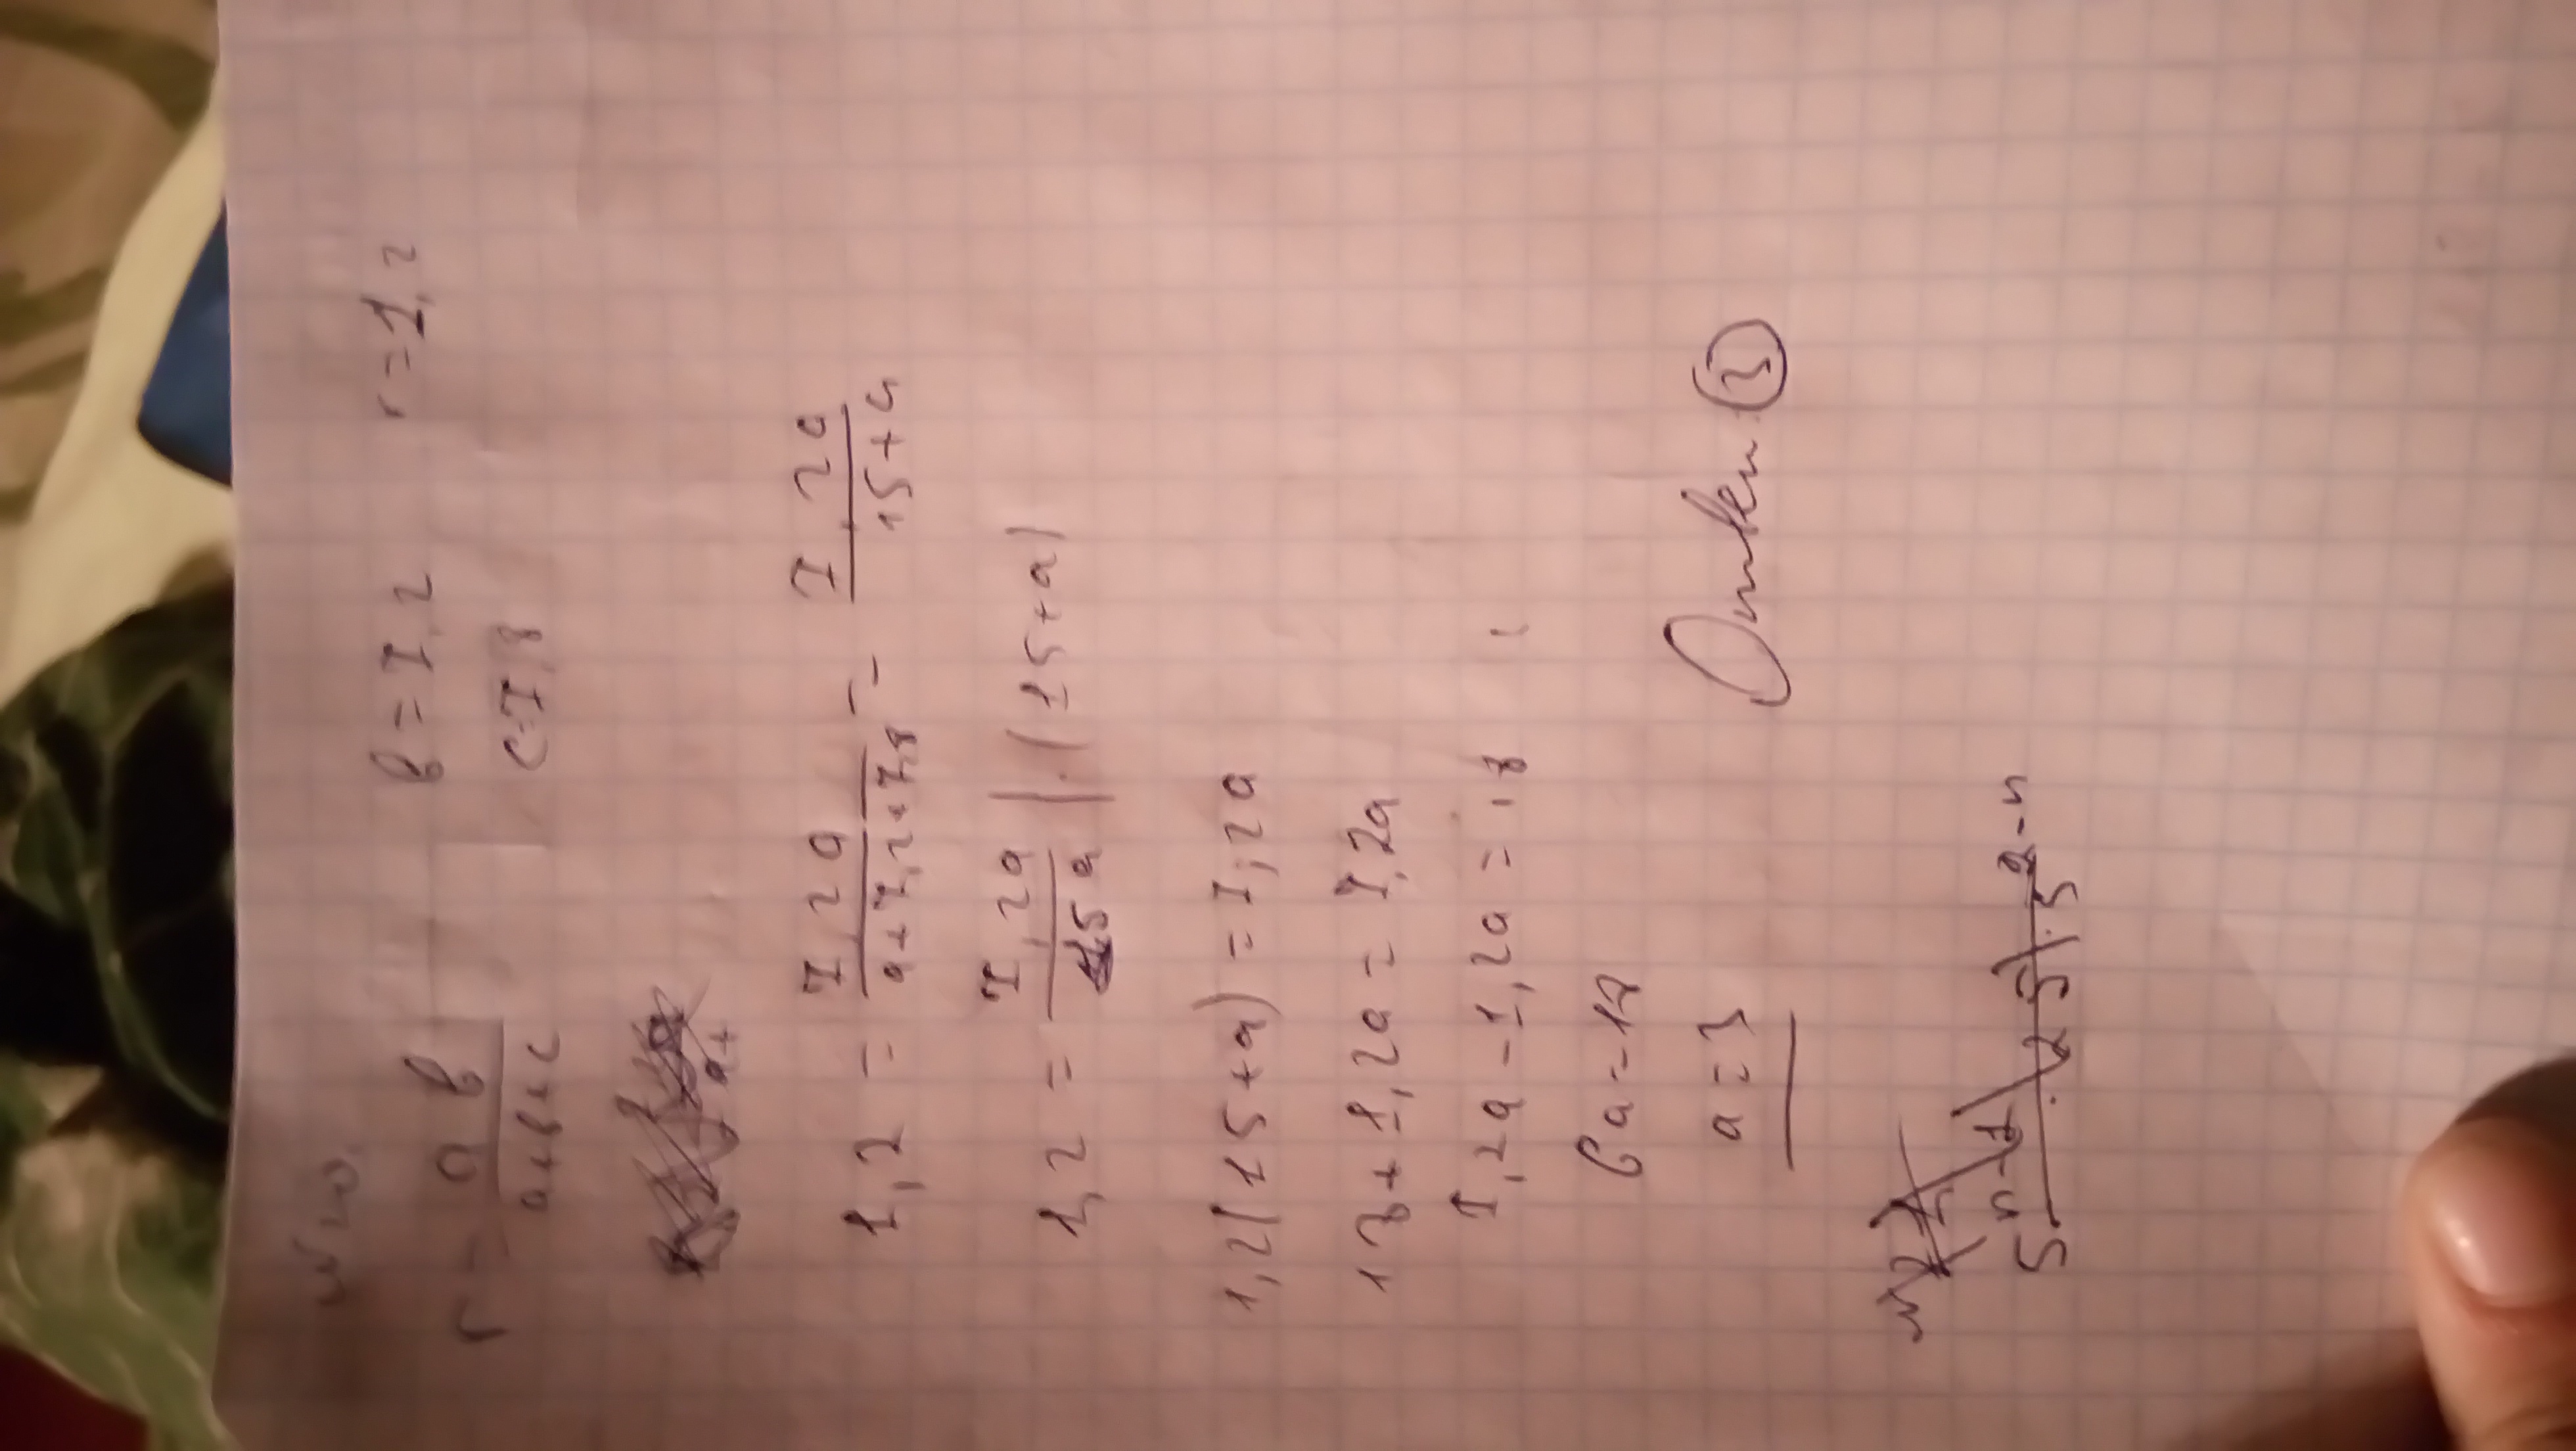 N10.
r = ab / a+b+c   b = 7,2   r = 1,2
c = 7,8
1,2 = 7,2a / a+7,2+7,8 = 7,2a / 15+a
1,2 = 7,2a / 15 a | · (15+a)
1,2(15+a) = 7,2a
18 + 1,2a = 7,2a
7,2a - 1,2a = 18
6a = 18
a = 3
Ответ: 3